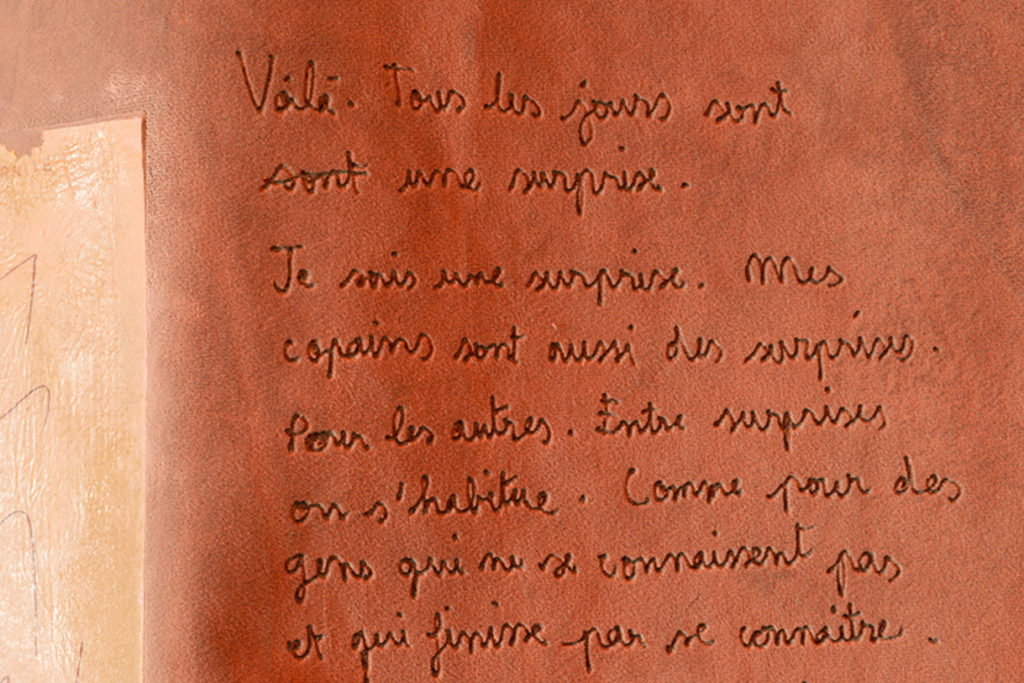 Voilà. Tous les jours sont
sont une surprise.
Je suis une surprise. Mes
copains sont aussi des surprises.
Pour les autres. Entre surprises
on s'habitue. Comme pour des
gens qui ne se connaissent pas
et qui finisse par se connaître.